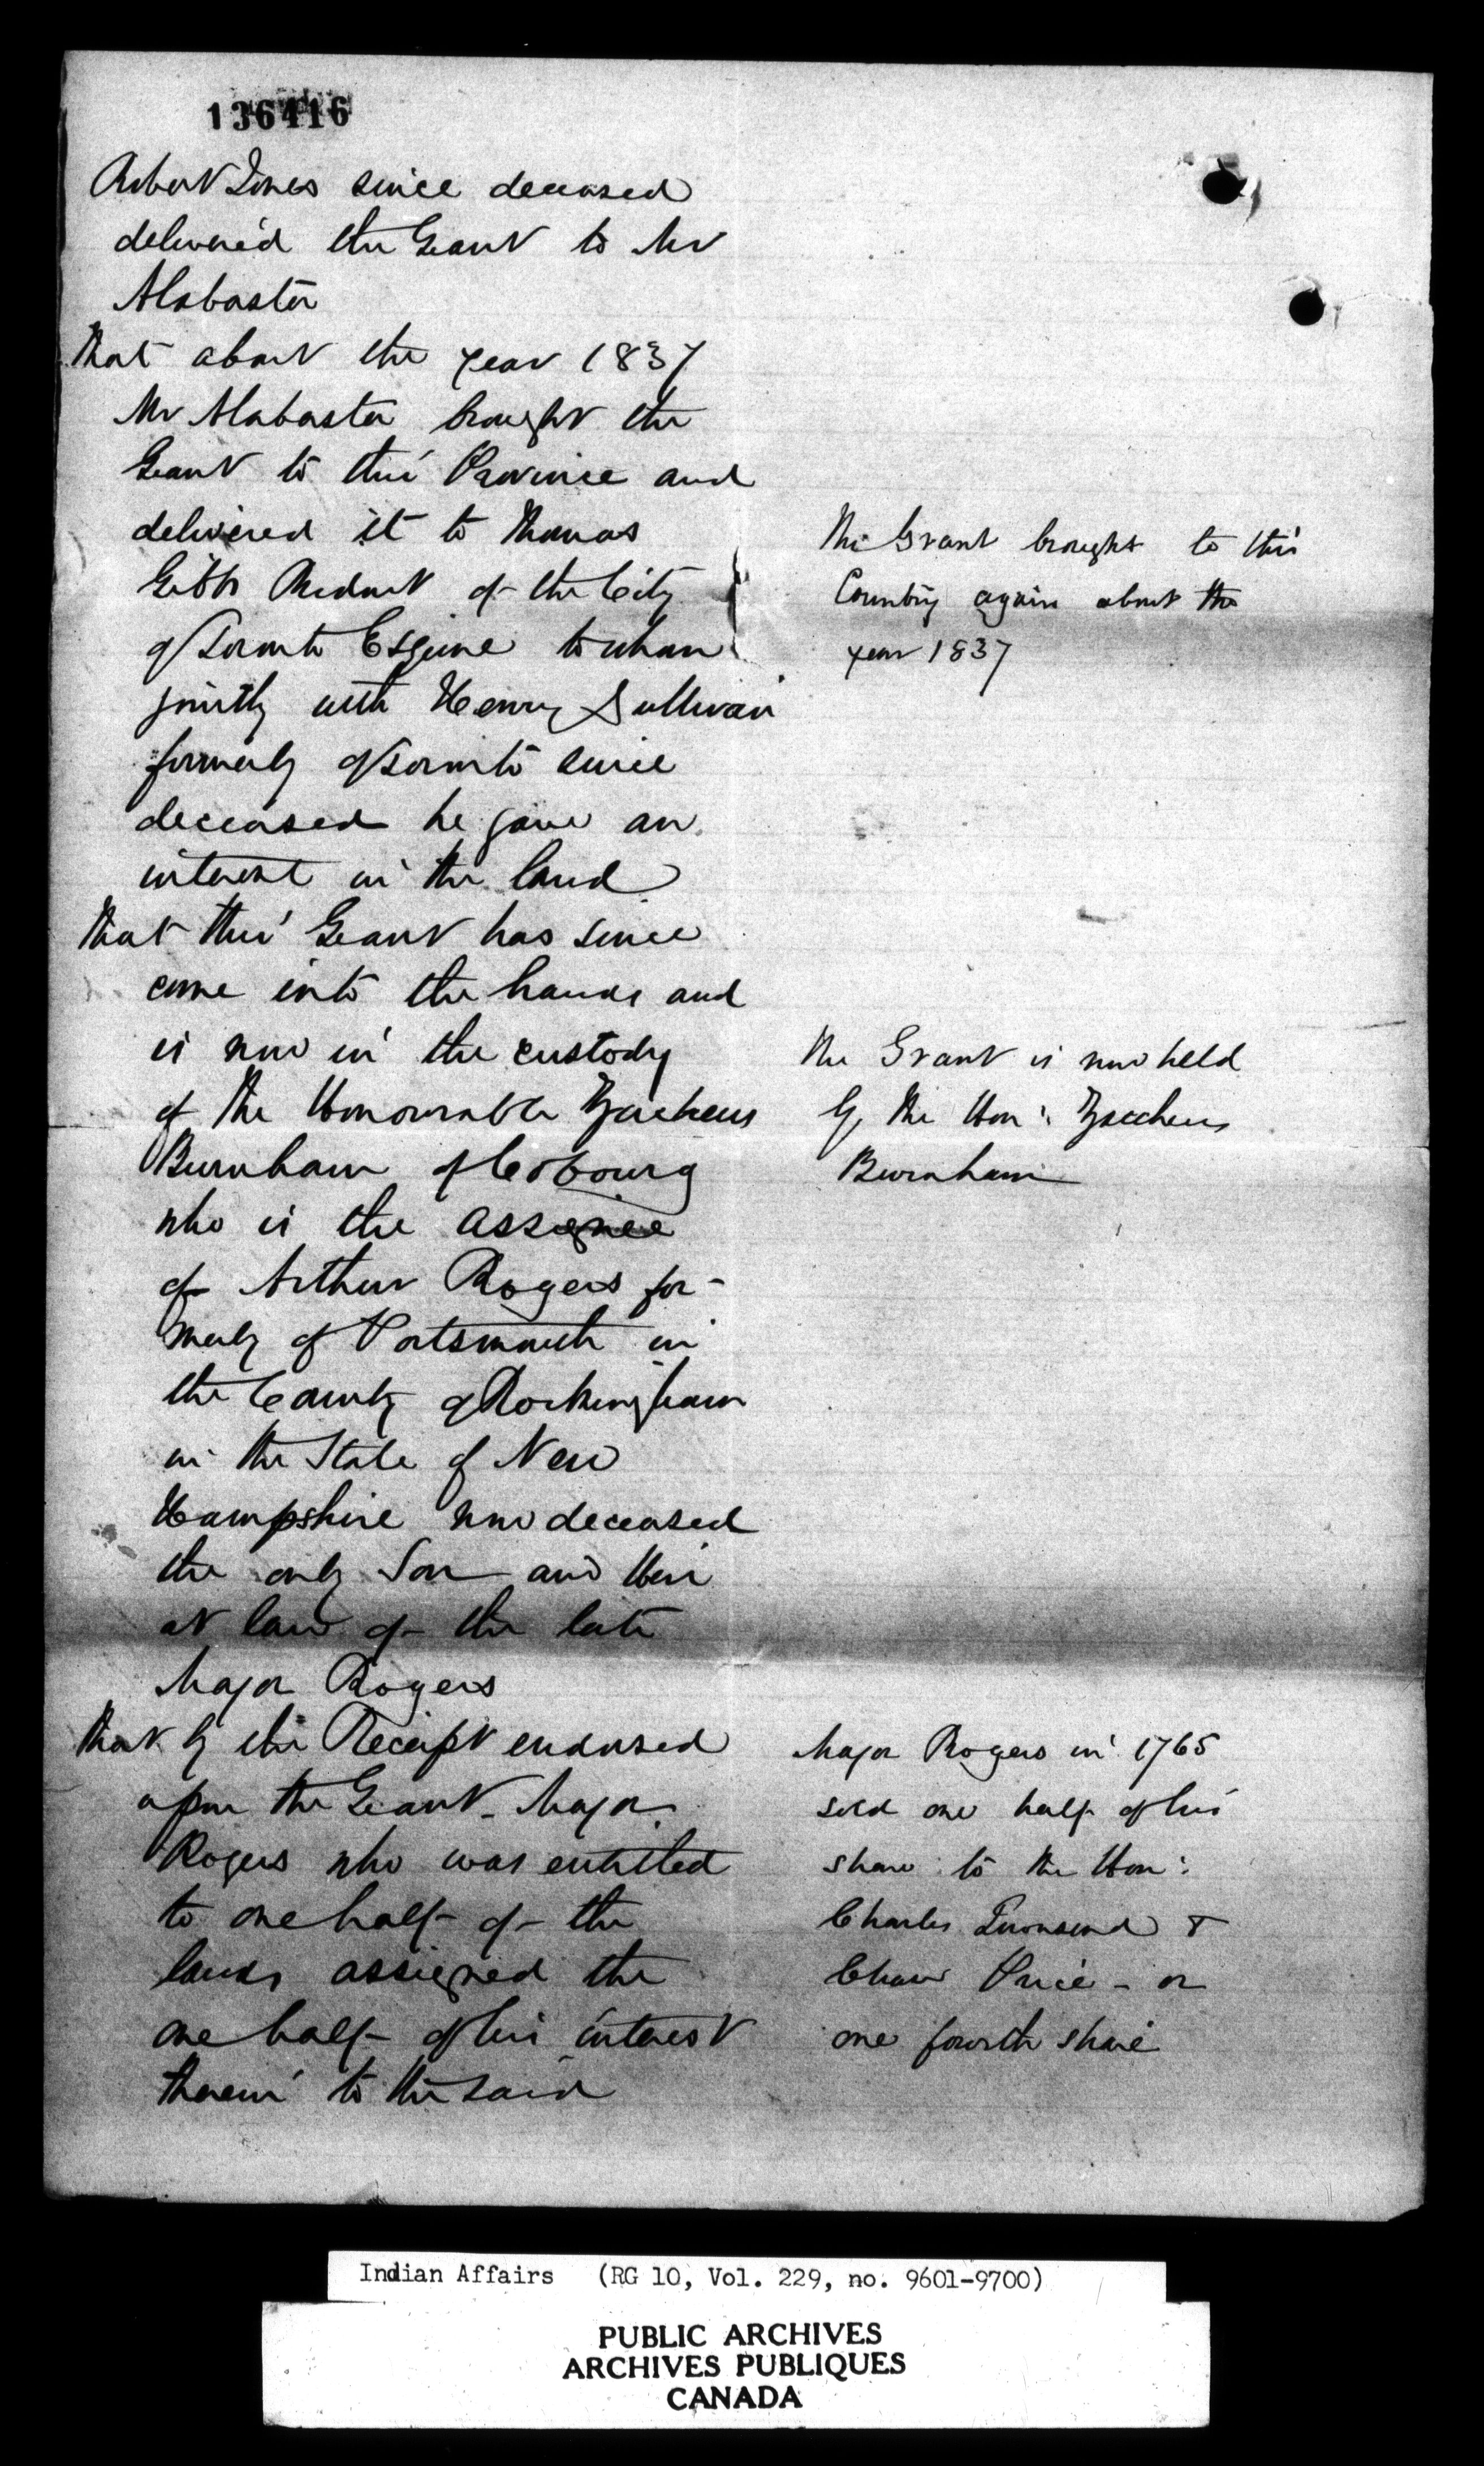 136416
Robert Innes since deceased
delivered the Grant to Mr
Alabaster
That about the year 1837
Mr Alabaster brought the
Grant to this Province and
delivered it to Thomas
Gibbs Ridout of the City
of Toronto Esquire to whom
jointly with Henry Sullivan
formerly of Toronto since
deceased he gave an
interest in the land
That this Grant has since
come into the hands and
is now in the custody
of the Honourable Zacheus
Burnham of Cobourg
who is the assignee
of Arthur Rogers for-
merly of Portsmouth in
the County of Rockingham
in the State of New
Hampshire now deceased
the only Son and Heir
at law of the late
Major Rogers
That by the Receipt endorsed
upon the Grant Major
Rogers who was entitled
to one half of the
lands assigned the
one half of his interest
therein to the said
The Grant brought to this
Country again about the
year 1837
The Grant is now held
by the Hon: Zaccheus
Burnham
Major Rogers in 1765
sold one half of his
share to the Hon:
Charles Townsend &
Chase Price - or
one fourth share
Indian Affairs (RG 10, Vol. 229, no. 9601-9700)
PUBLIC ARCHIVES
ARCHIVES PUBLIQUES
CANADA